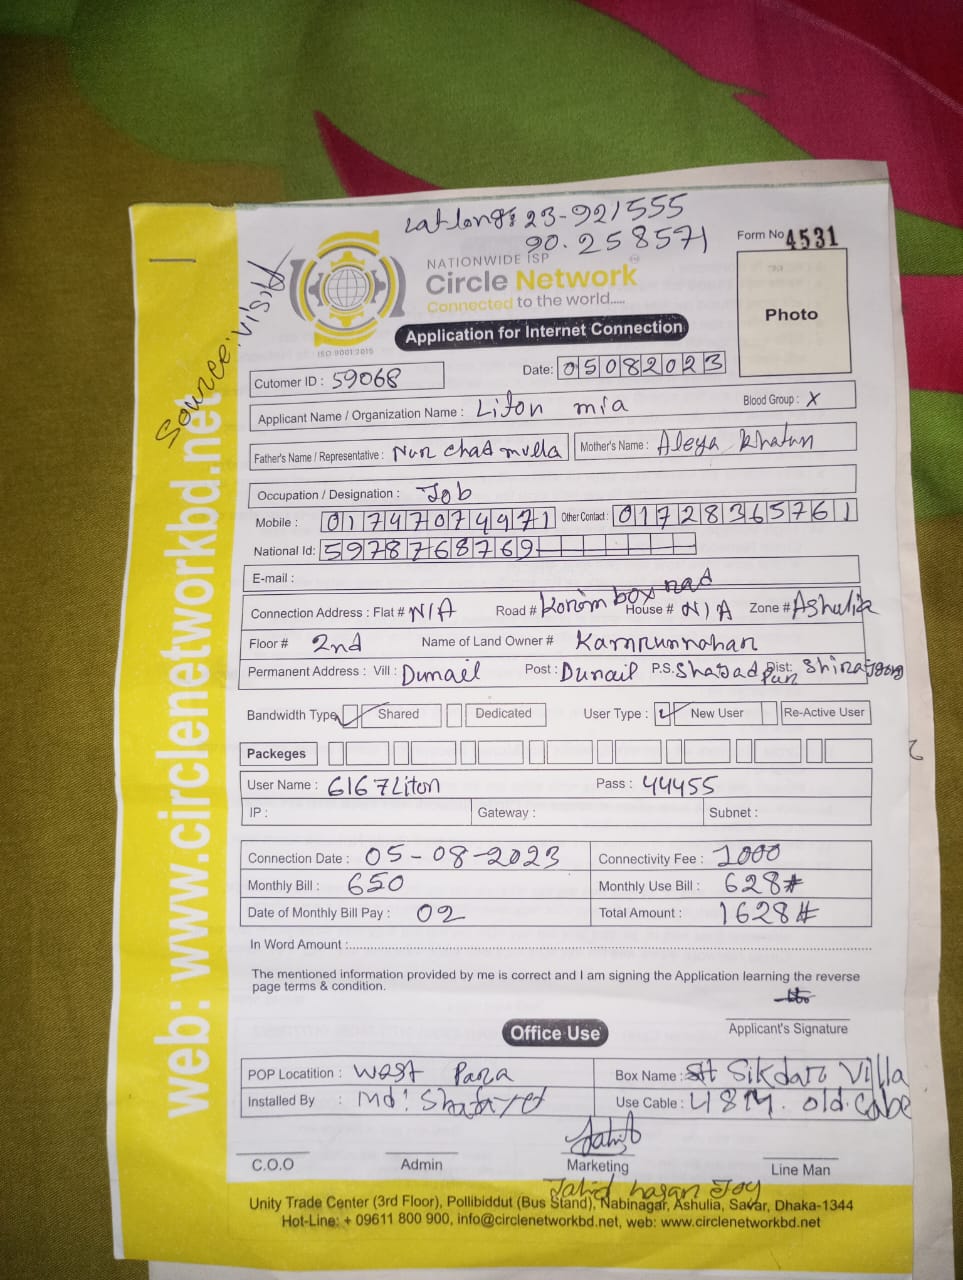 Lat long: 23-921555
90.258571
Form No 4531
Source: visit
NATIONWIDE ISP
Circle Network
Connected to the world.....
ISO 9001:2015
Application for Internet Connection
Photo
Cutomer ID : 59068
Date: 05082023
Applicant Name / Organization Name : Liton mia
Blood Group : X
Father's Name / Representative : Nur chad mulla
Mother's Name : Aleya khatun
Occupation / Designation : Job
Mobile : 01747074971 Other Contact : 01728365761
National Id: 5978768769
E-mail :
Connection Address : Flat # N/A Road # Korim box road House # N/A Zone # Ashulia
Floor # 2nd Name of Land Owner # Kamrunnahar
Permanent Address : Vill : Dumail Post : Dumail P.S. Dist:
Bandwidth Type Shared Dedicated User Type : New User Re-Active User
Packeges
User Name : 6167Liton Pass : 44455
IP : Gateway : Subnet :
Connection Date : 05-08-2023 Connectivity Fee : 1000
Monthly Bill : 650 Monthly Use Bill : 628#
Date of Monthly Bill Pay : 02 Total Amount : 1628#
In Word Amount :
The mentioned information provided by me is correct and I am signing the Application learning the reverse
page terms & condition.
Applicant's Signature
Office Use
POP Locatition : West Para Box Name : Sikdar Villa
Installed By : Md: Shafayet Use Cable : 48M. old. Cable
C.O.O Admin Marketing Line Man
Jahid hasan Joy
Unity Trade Center (3rd Floor), Pollibiddut (Bus Stand), Nabinagar, Ashulia, Savar, Dhaka-1344
Hot-Line: + 09611 800 900, info@circlenetworkbd.net, web: www.circlenetworkbd.net
web: www.circlenetworkbd.net